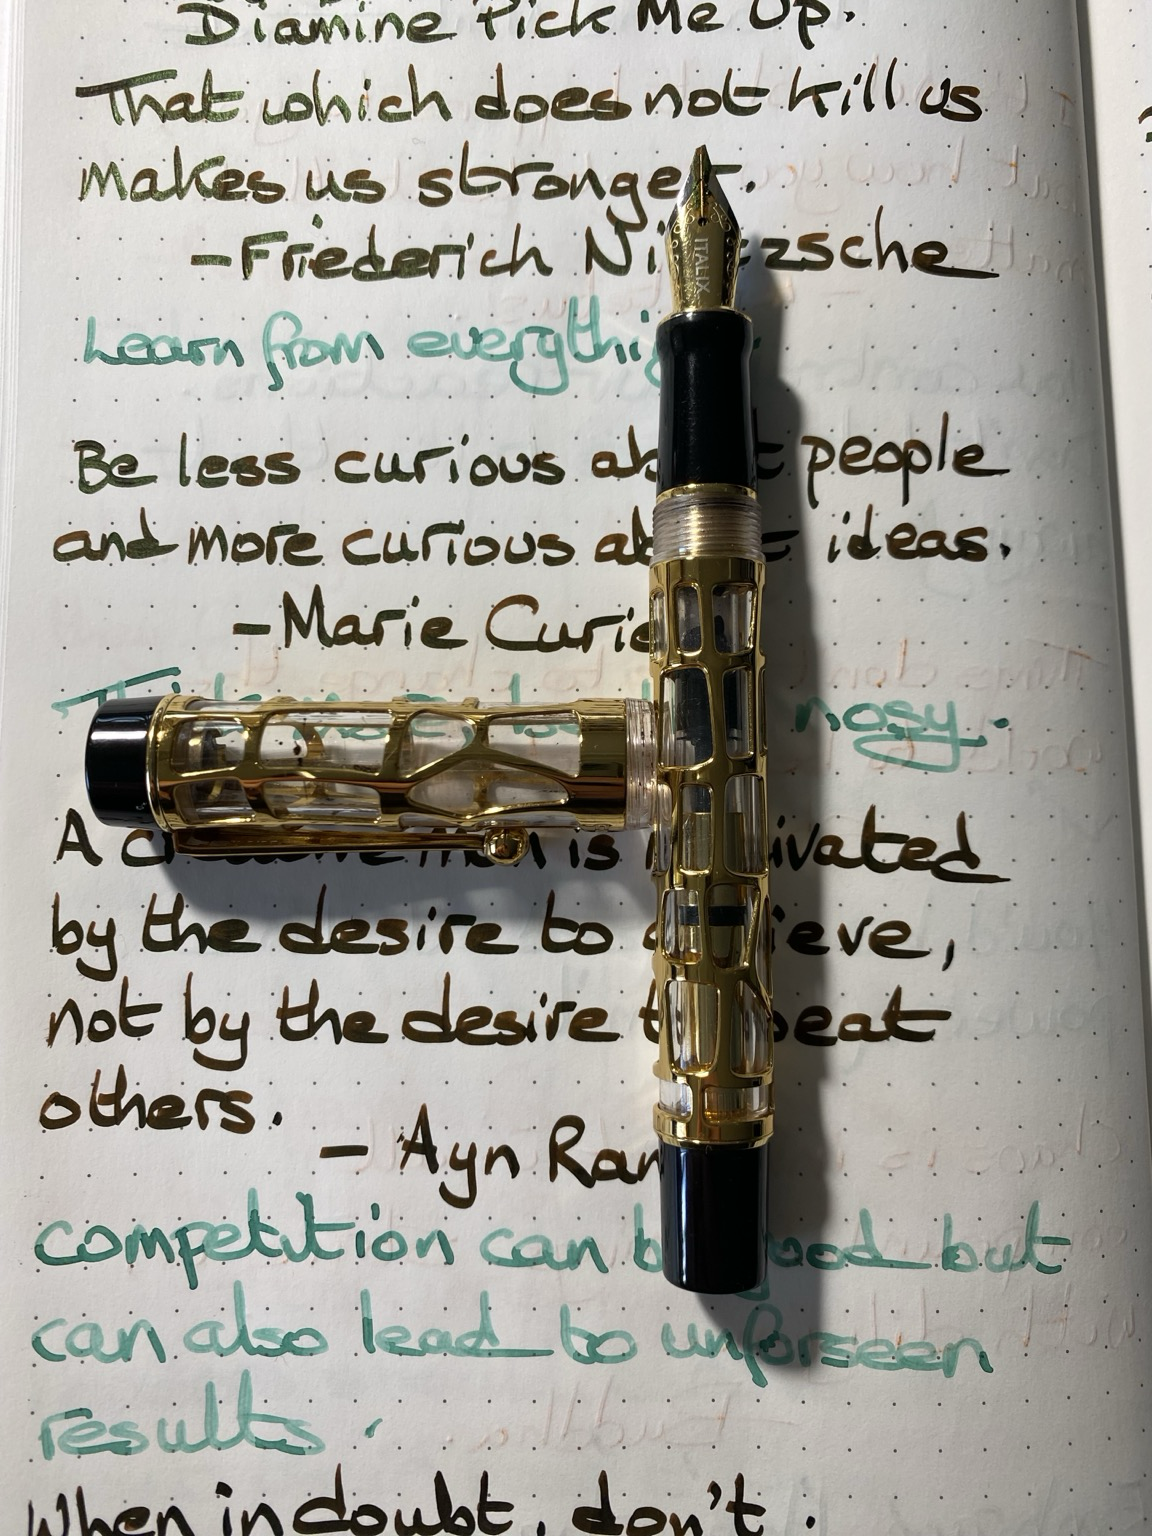 Diamine Pick Me Up.
That which does not kill us
makes us stronger.
-Friederich Ni zsche
Learn from everything
Be less curious ab t people
and more curious ab t ideas.
-Marie Curie
nosy.
A is ivated
by the desire to ieve,
not by the desire t beat
others.
- Ayn Ran
competition can b good but
can also lead to unforseen
results.
When in doubt, don't.
ITALIX